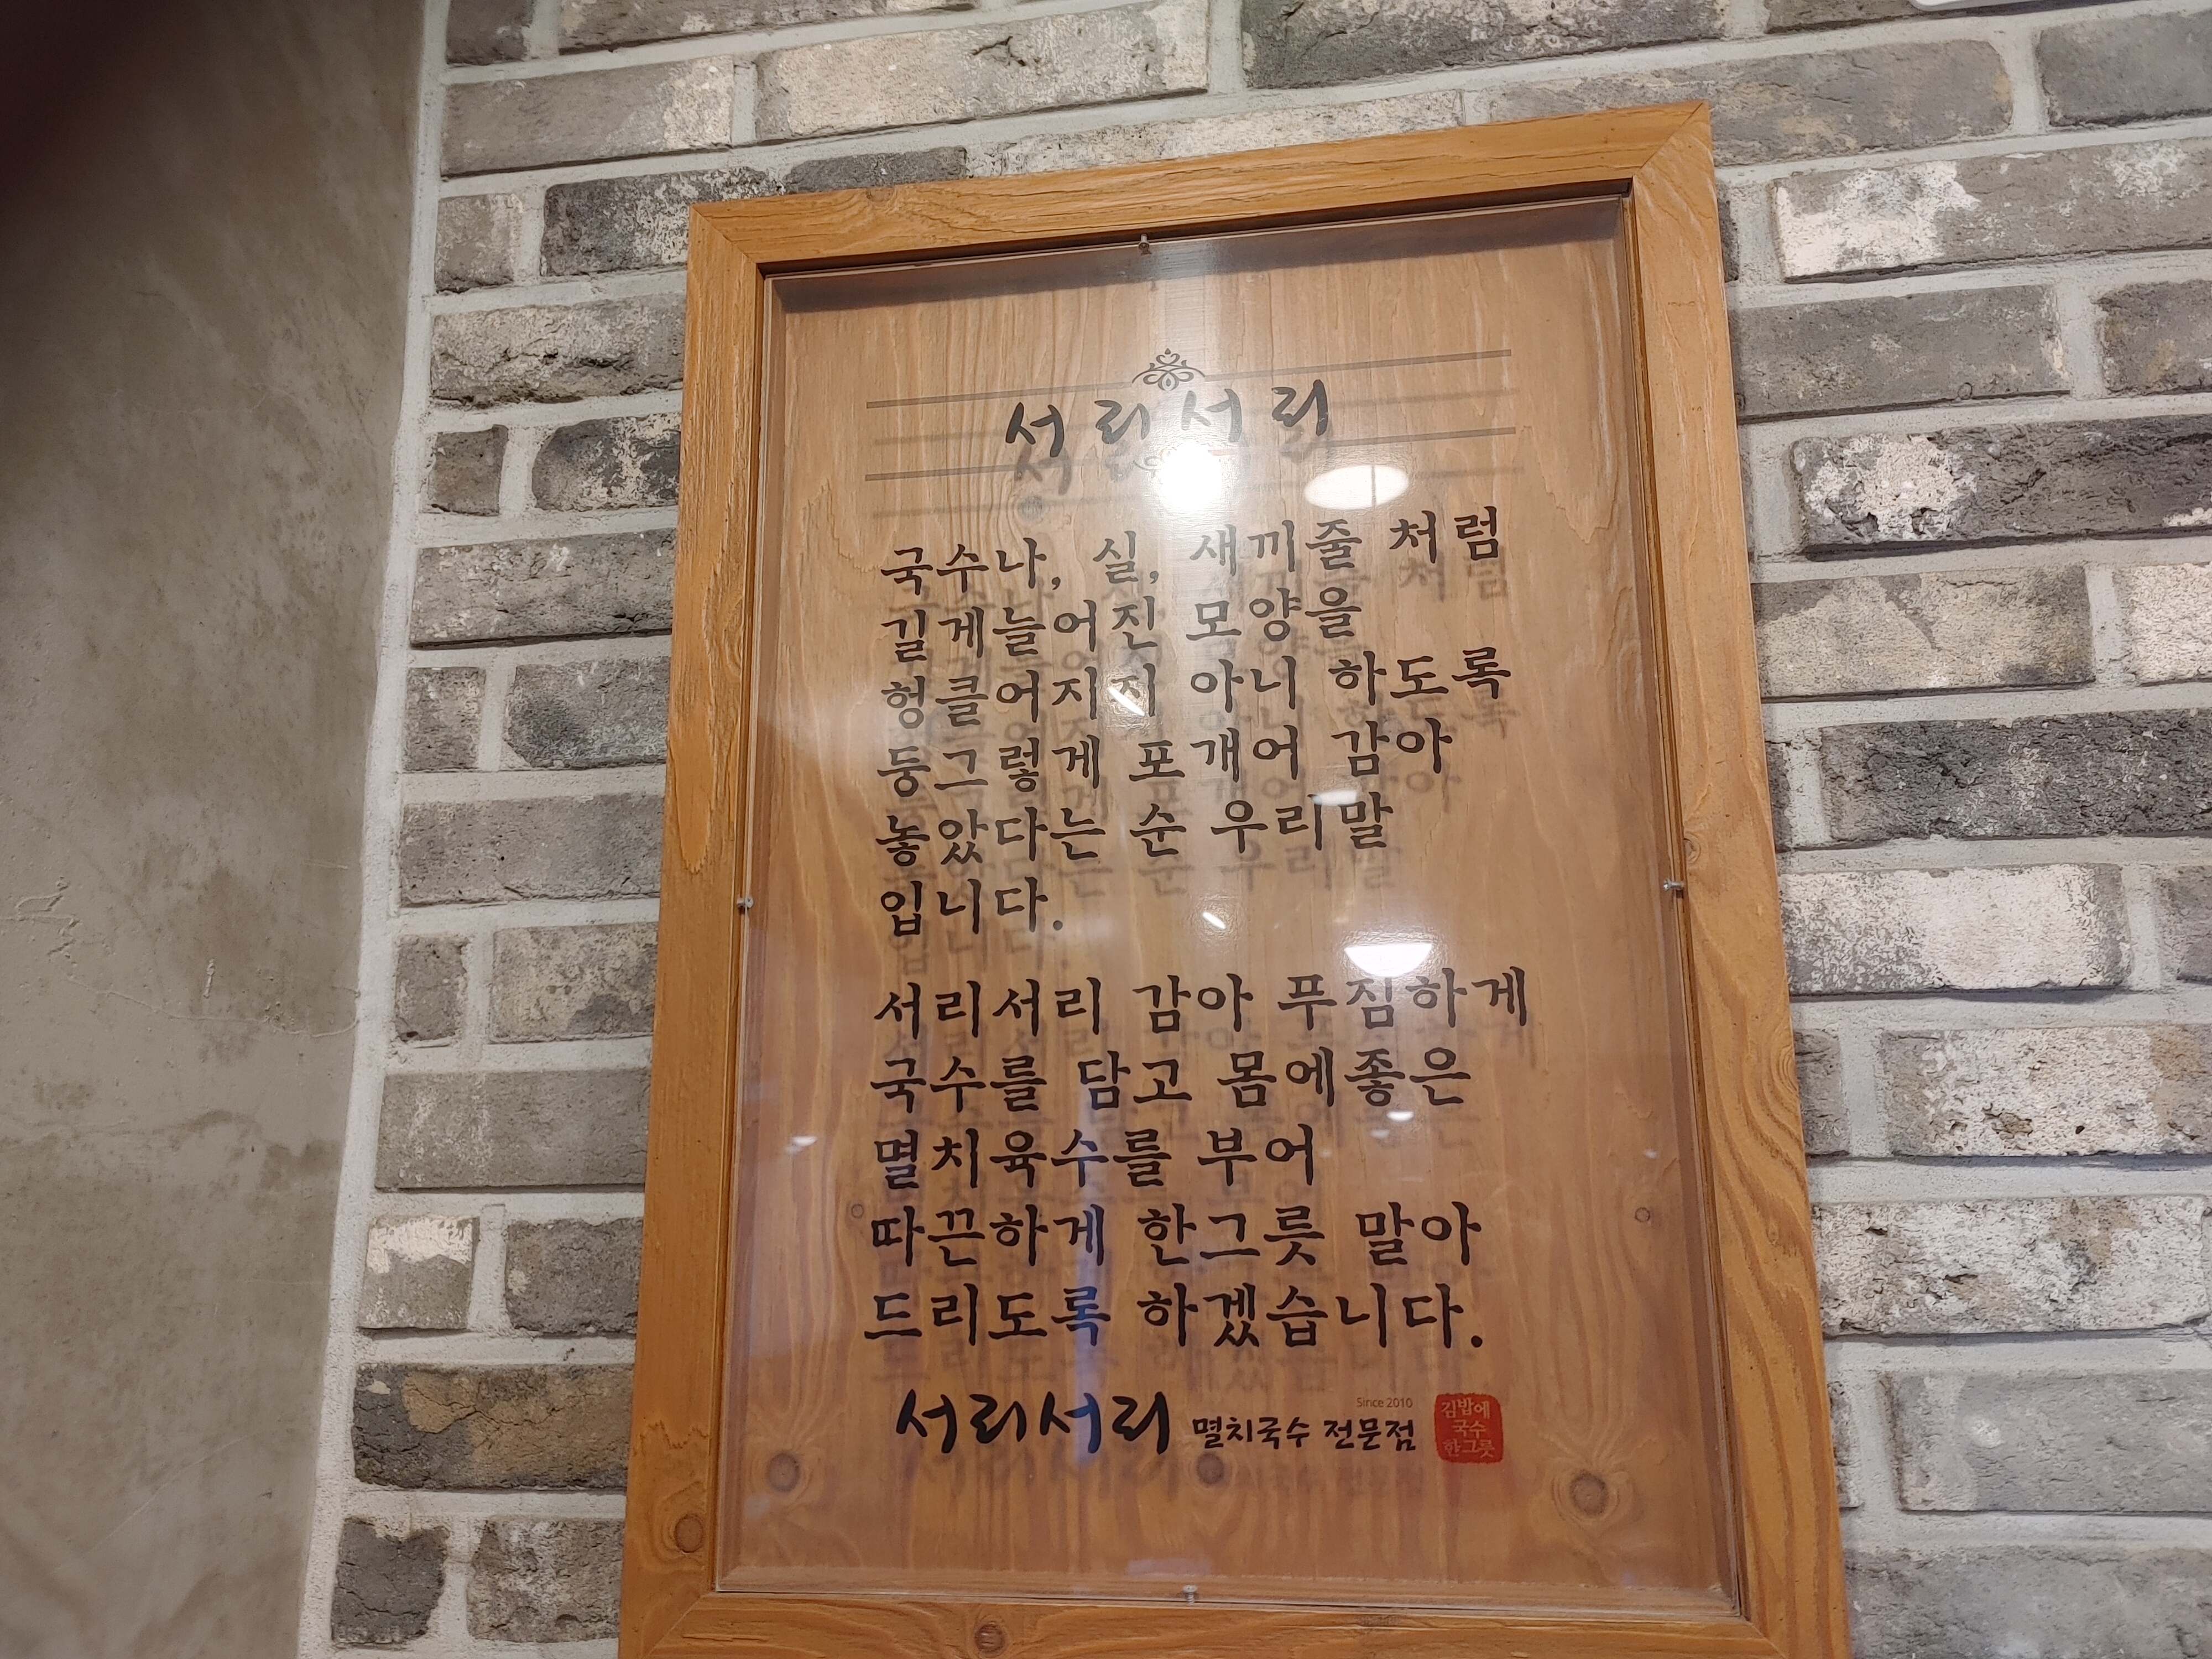 서리서리
국수나, 실, 새끼줄 처럼
길게늘어진 모양을
헝클어지지 아니 하도록
둥그렇게 포개어 감아
놓았다는 순 우리말
입니다.
서리서리 감아 푸짐하게
국수를 담고 몸에좋은
멸치육수를 부어
따끈하게 한그릇 말아
드리도록 하겠습니다.
Since 2010
서리서리 멸치국수 전문점
김밥에
국수
한그릇